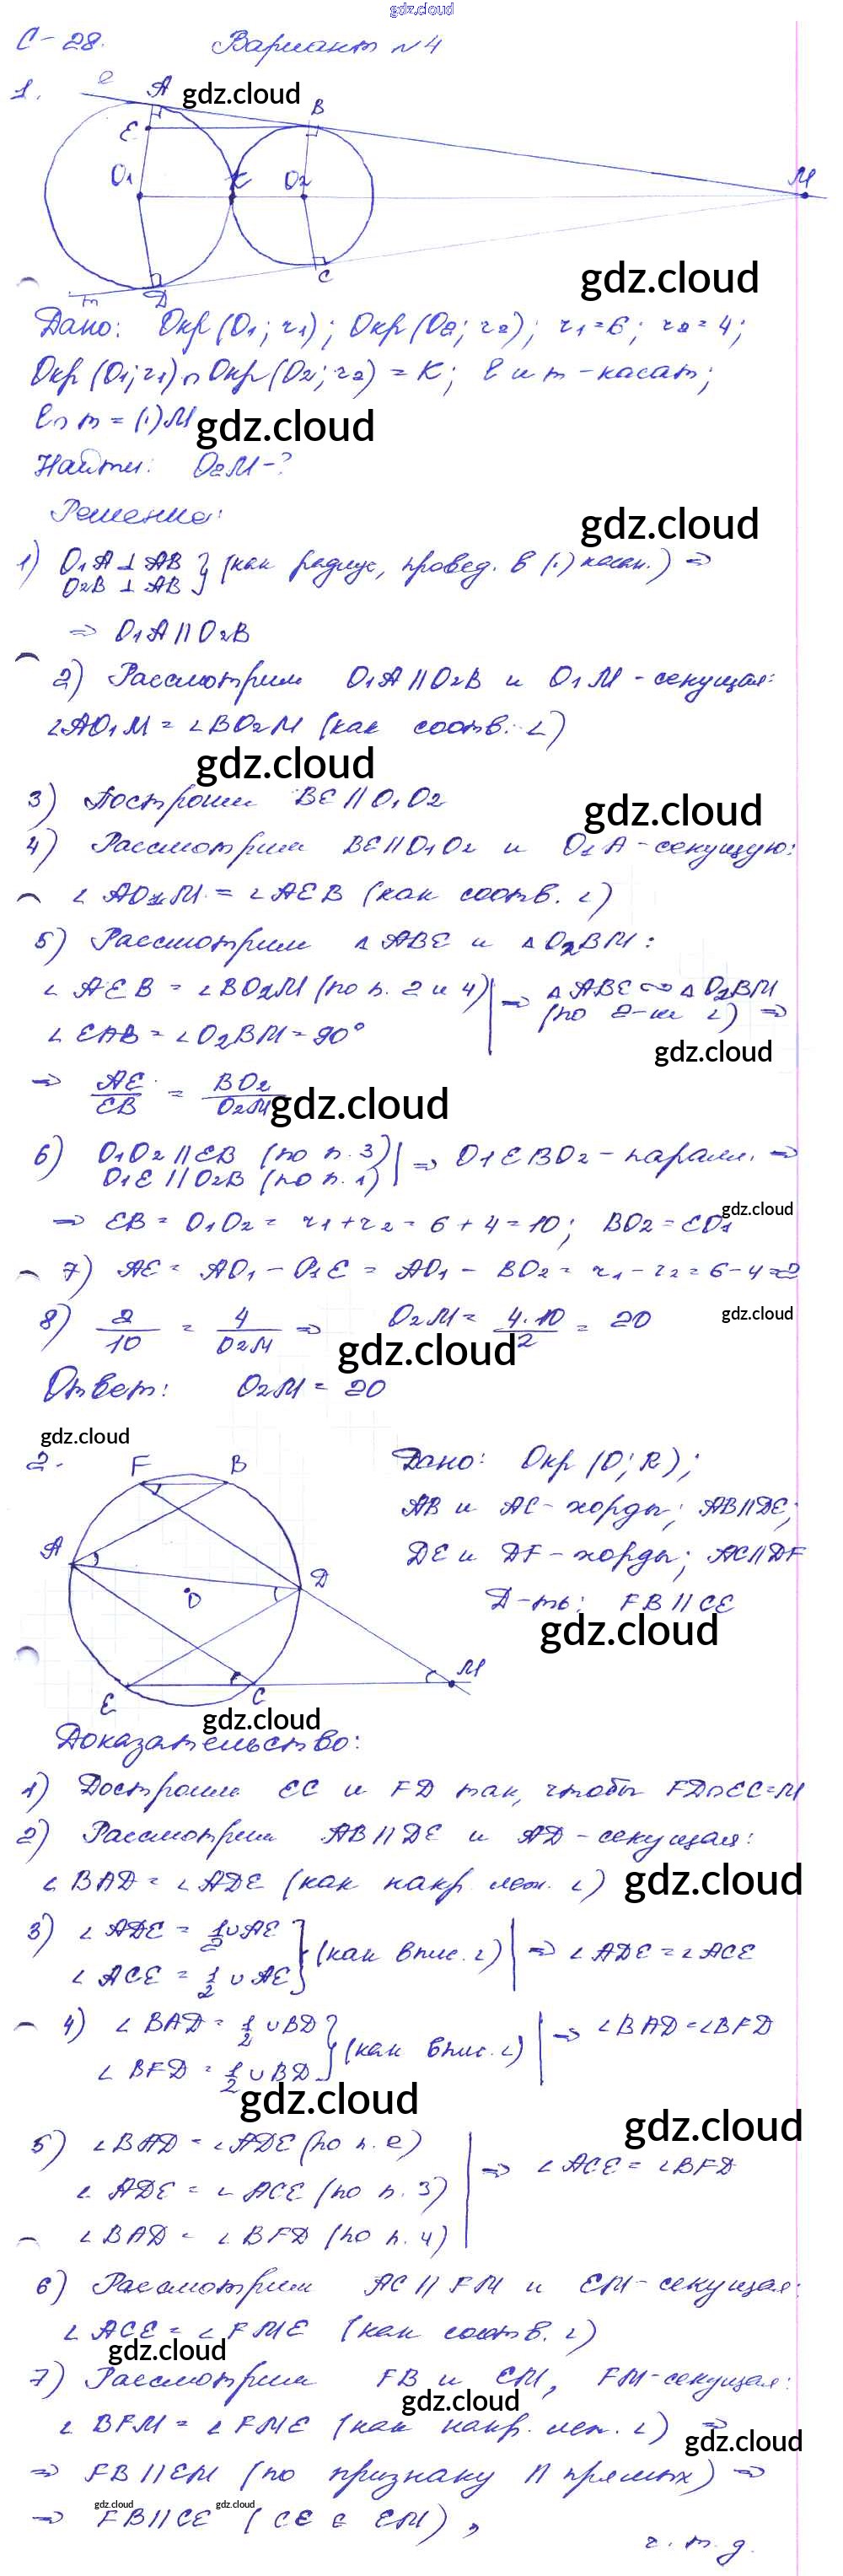 gdz.cloud
С-28. Вариант №4
1.
e A gdz.cloud B
E
O1 K O2 M
gdz.cloud
m D C
Дано: Окр(O1; r1); Окр(O2; r2); r1=6; r2=4;
Окр(O1; r1)∩Окр(O2; r2) = K; l и m - касат;
l∩m = (·)M
gdz.cloud
Найти: O2M-?
Решение:
gdz.cloud
1) O1A ⊥ AB
O2B ⊥ AB } (как радиус, провед. в (·) касан.) ⇒
⇒ O1A || O2B
2) Рассмотрим O1A || O2B и O1M - секущая:
∠AO1M = ∠BO2M (как соотв. ∠)
gdz.cloud
3) Построим BE || O1O2
gdz.cloud
4) Рассмотрим BE||O1O2 и O1A - секущую:
∠AO1M = ∠AEB (как соотв. ∠)
5) Рассмотрим △ABE и △O2BM:
∠AEB = ∠BO2M (по п. 2 и 4) | ⇒ △ABE ∾ △O2BM
∠EAB = ∠O2BM = 90° (по 2-м ∠) ⇒
gdz.cloud
⇒ AE/EB = BO2/O2M
gdz.cloud
6) O1O2 || EB (по п. 3)
O1E || O2B (по п. 1) | ⇒ O1EBO2 - паралл. ⇒
gdz.cloud
⇒ EB = O1O2 = r1+r2 = 6+4=10; BO2 = EO1
7) AE = AO1 - O1E = AO1 - BO2 = r1 - r2 = 6-4=2
8) 2/10 = 4/O2M ⇒ O2M = 4·10/2 = 20
gdz.cloud
gdz.cloud
Ответ: O2M = 20
gdz.cloud
2. F B Дано: Окр(O; R);
AB и AC - хорды; AB||DE;
A DE и DF - хорды; AC||DF
D Д-ть: FB || CE
O
gdz.cloud
M
E C
gdz.cloud
Доказательство:
1) Достроим EC и FD так, чтобы FD∩EC=M
2) Рассмотрим AB || DE и AD - секущая:
∠BAD = ∠ADE (как накр. леж. ∠)
gdz.cloud
3) ∠ADE = 1/2 ∪AE
∠ACE = 1/2 ∪AE } (как впис. ∠) | ⇒ ∠ADE = ∠ACE
4) ∠BAD = 1/2 ∪BD
∠BFD = 1/2 ∪BD } (как впис. ∠) | ⇒ ∠BAD = ∠BFD
gdz.cloud
gdz.cloud
5) ∠BAD = ∠ADE (по п. 2)
∠ADE = ∠ACE (по п. 3) | ⇒ ∠ACE = ∠BFD
∠BAD = ∠BFD (по п. 4)
6) Рассмотрим AC || FM и EM - секущая:
∠ACE = ∠FME (как соотв. ∠)
gdz.cloud
7) Рассмотрим FB и EM, FM - секущая:
gdz.cloud
∠BFM = ∠FME (как накр. леж. ∠) ⇒
gdz.cloud
⇒ FB || EM (по признаку || прямых) ⇒
gdz.cloud gdz.cloud
⇒ FB || CE (CE ∈ EM),
ч. т. д.